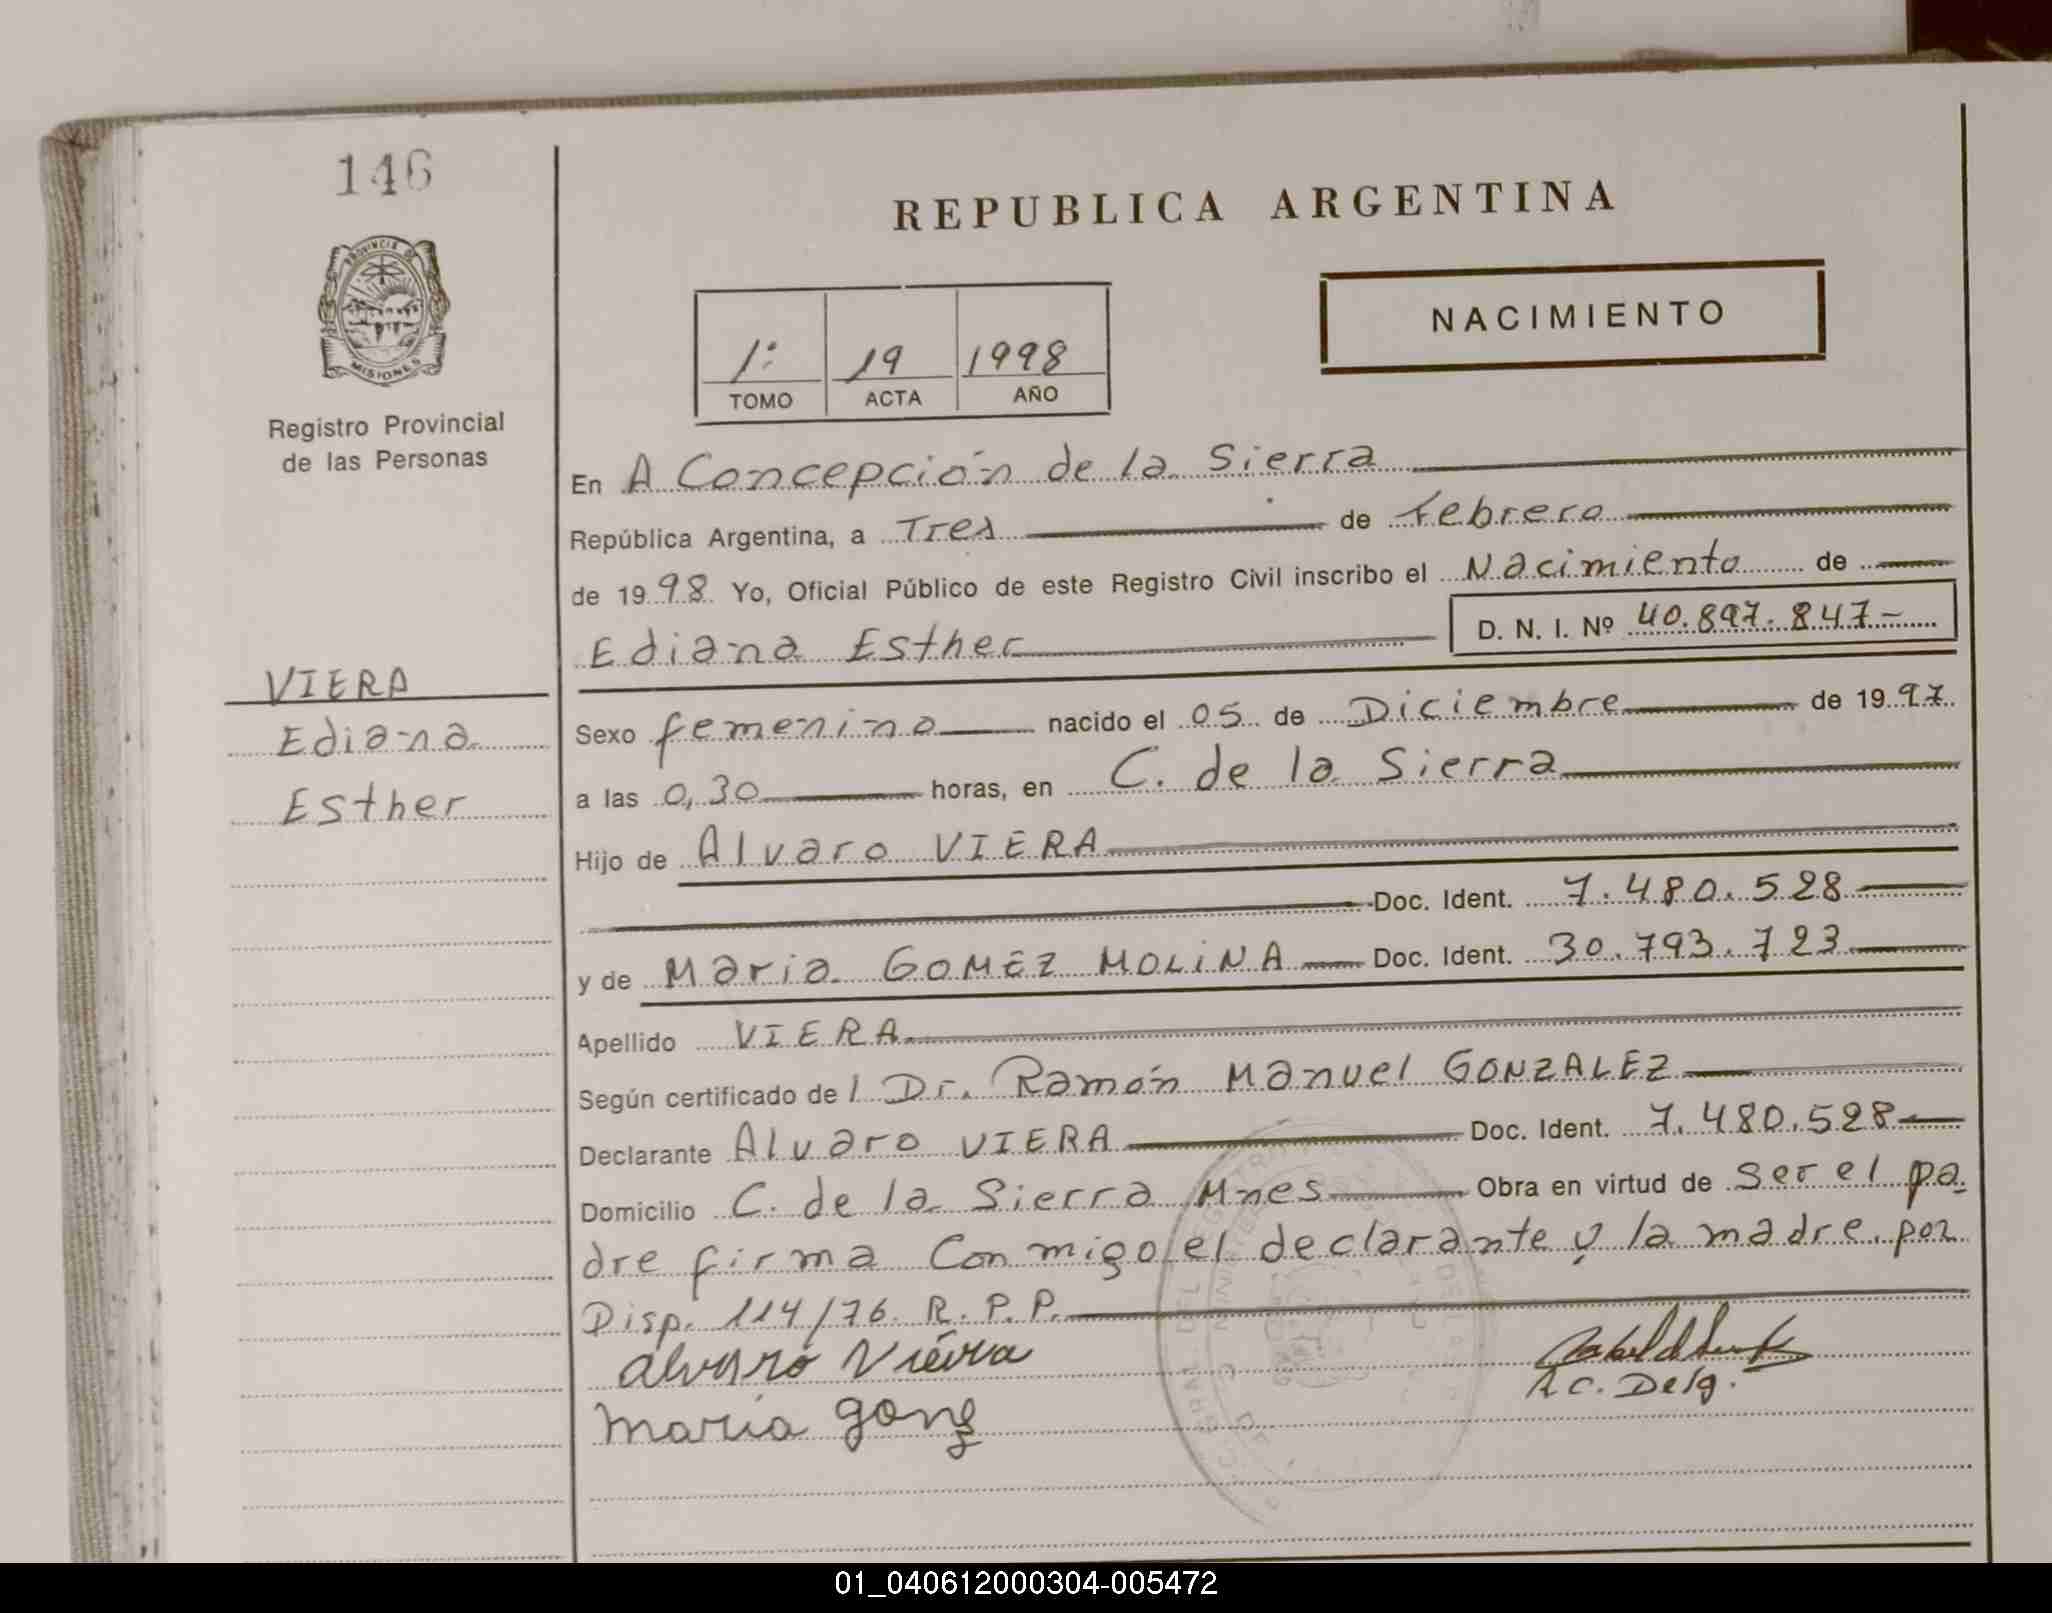 146
REPUBLICA ARGENTINA
NACIMIENTO
PROVINCIA DE
MISIONES
1º 19 1998
TOMO ACTA AÑO
Registro Provincial
de las Personas
En A Concepción de la Sierra
República Argentina, a Tres de febrero
de 1998 Yo, Oficial Público de este Registro Civil inscribo el Nacimiento de
Ediana Esther D. N. I. Nº 40.897.847-
VIERA
Ediana
Esther
Sexo femenino nacido el 05 de Diciembre de 1997
a las 0,30 horas, en C. de la Sierra
Hijo de Alvaro VIERA
Doc. Ident. 7.480.528
y de Maria GOMEZ MOLINA Doc. Ident. 30.793.723
Apellido VIERA
Según certificado del Dr. Ramón Manuel GONZALEZ
Declarante Alvaro VIERA Doc. Ident. 7.480.528
Domicilio C. de la Sierra Mnes Obra en virtud de ser el pa
dre firma Conmigo el declarante y la madre por
Disp. 114/76 R.P.P.
alvaro Vieira
maria gomz
A C. Delg.
01_040612000304-005472